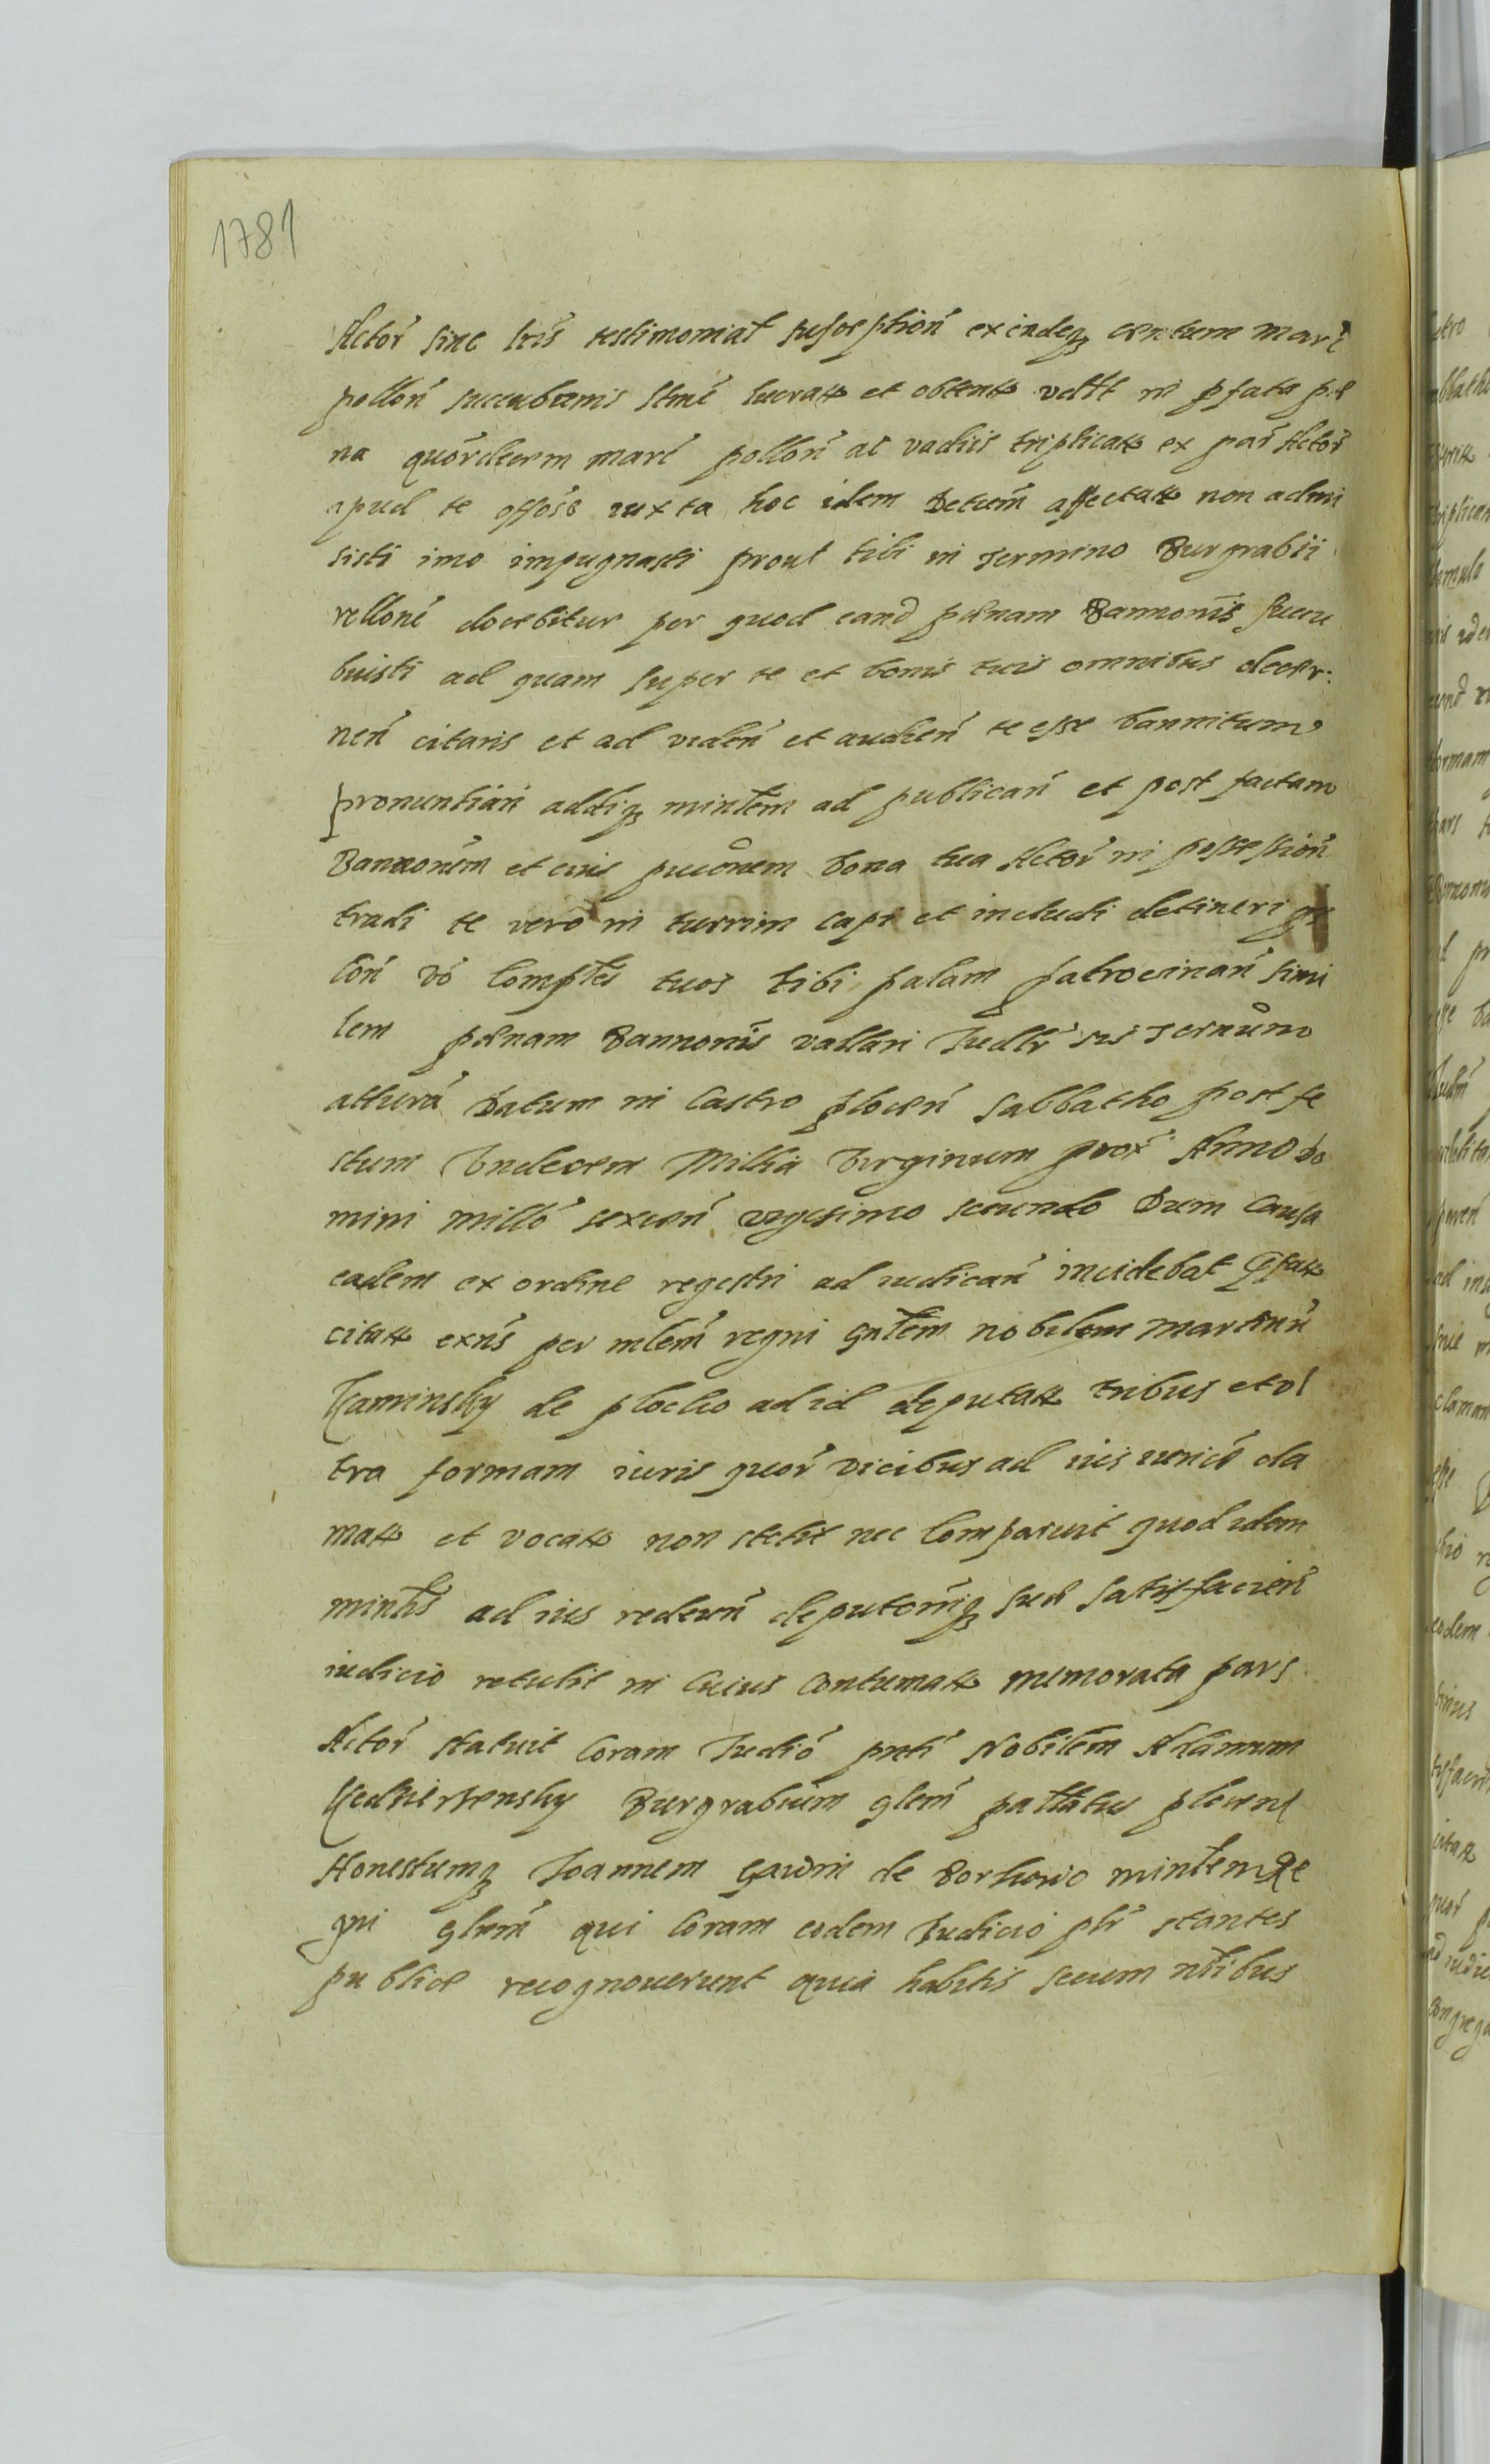 1781
Actor sine lris testimonial susception exindeq centum marc
pollon succubuis stme lucrat et obtent vdlt in pfata pæ
na quordecem marc pollon ac vadiis triplicat ex par Actor
apud te offose iuxta hoc idem Detum affectat non admi
sisti imo impugnasti prout tibi in termino Burgrabii
rellone docebitur per quod eand pænam Bannonis succu
buisti ad quam super te et bonis tuis omnibus decer:
nen citaris et ad viden et audien te esse bannitum
pronuntian addiq mintem ad publican et post factam
Bannonem et eius puconem bona tua Actor in possession
tradi te vero in turrim capi et includi detineri
con vo Complcs tuos tibi palam patrocinan simi
lem pænam Bannonis vallari Iudlr sis Ternum
attura Datum in Castro plocen Sabbatho post fe
stum Undecem Millia Virginum prox Anno Do
mini millo sexcen vigesimo secundo Dum Causa
eadem ex ordine regestri ad iudican incidebat Pfat
citat exns per mlem regni gnlem nobilem Martinu
Kaminsky de plocko ad id deputat tribus et vl
tra formam iuris quor vicibus ad iusiurice cla
mat et vocat non stetit nec Comparuit quod idem
mintls ad ius redeun deputoniq sue satisfacien
iudicio retulit in Cuius Contumat memorata pars
Actor statuit Coram Iudio pnti Nobilem Adamum
Burgrabium glem pallatus plocene
Honestumq Ioannem Gawin de Borkowo mintem Re
gni glnem qui Coram eodem Iudicio plr stantes
publice recognouerunt quia habitis secum nlibus